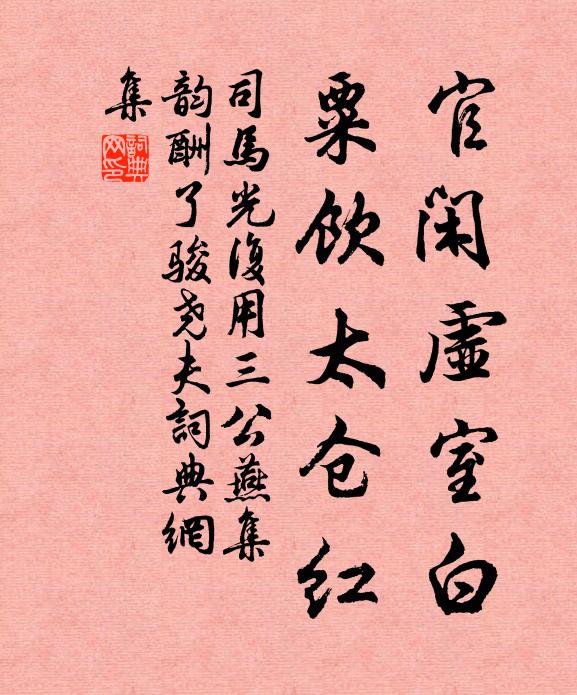 官闲虚室白
粟饮太仓红
司馬光復用三公燕集
韵酬了骏尧夫詞典網
集
詞典网印